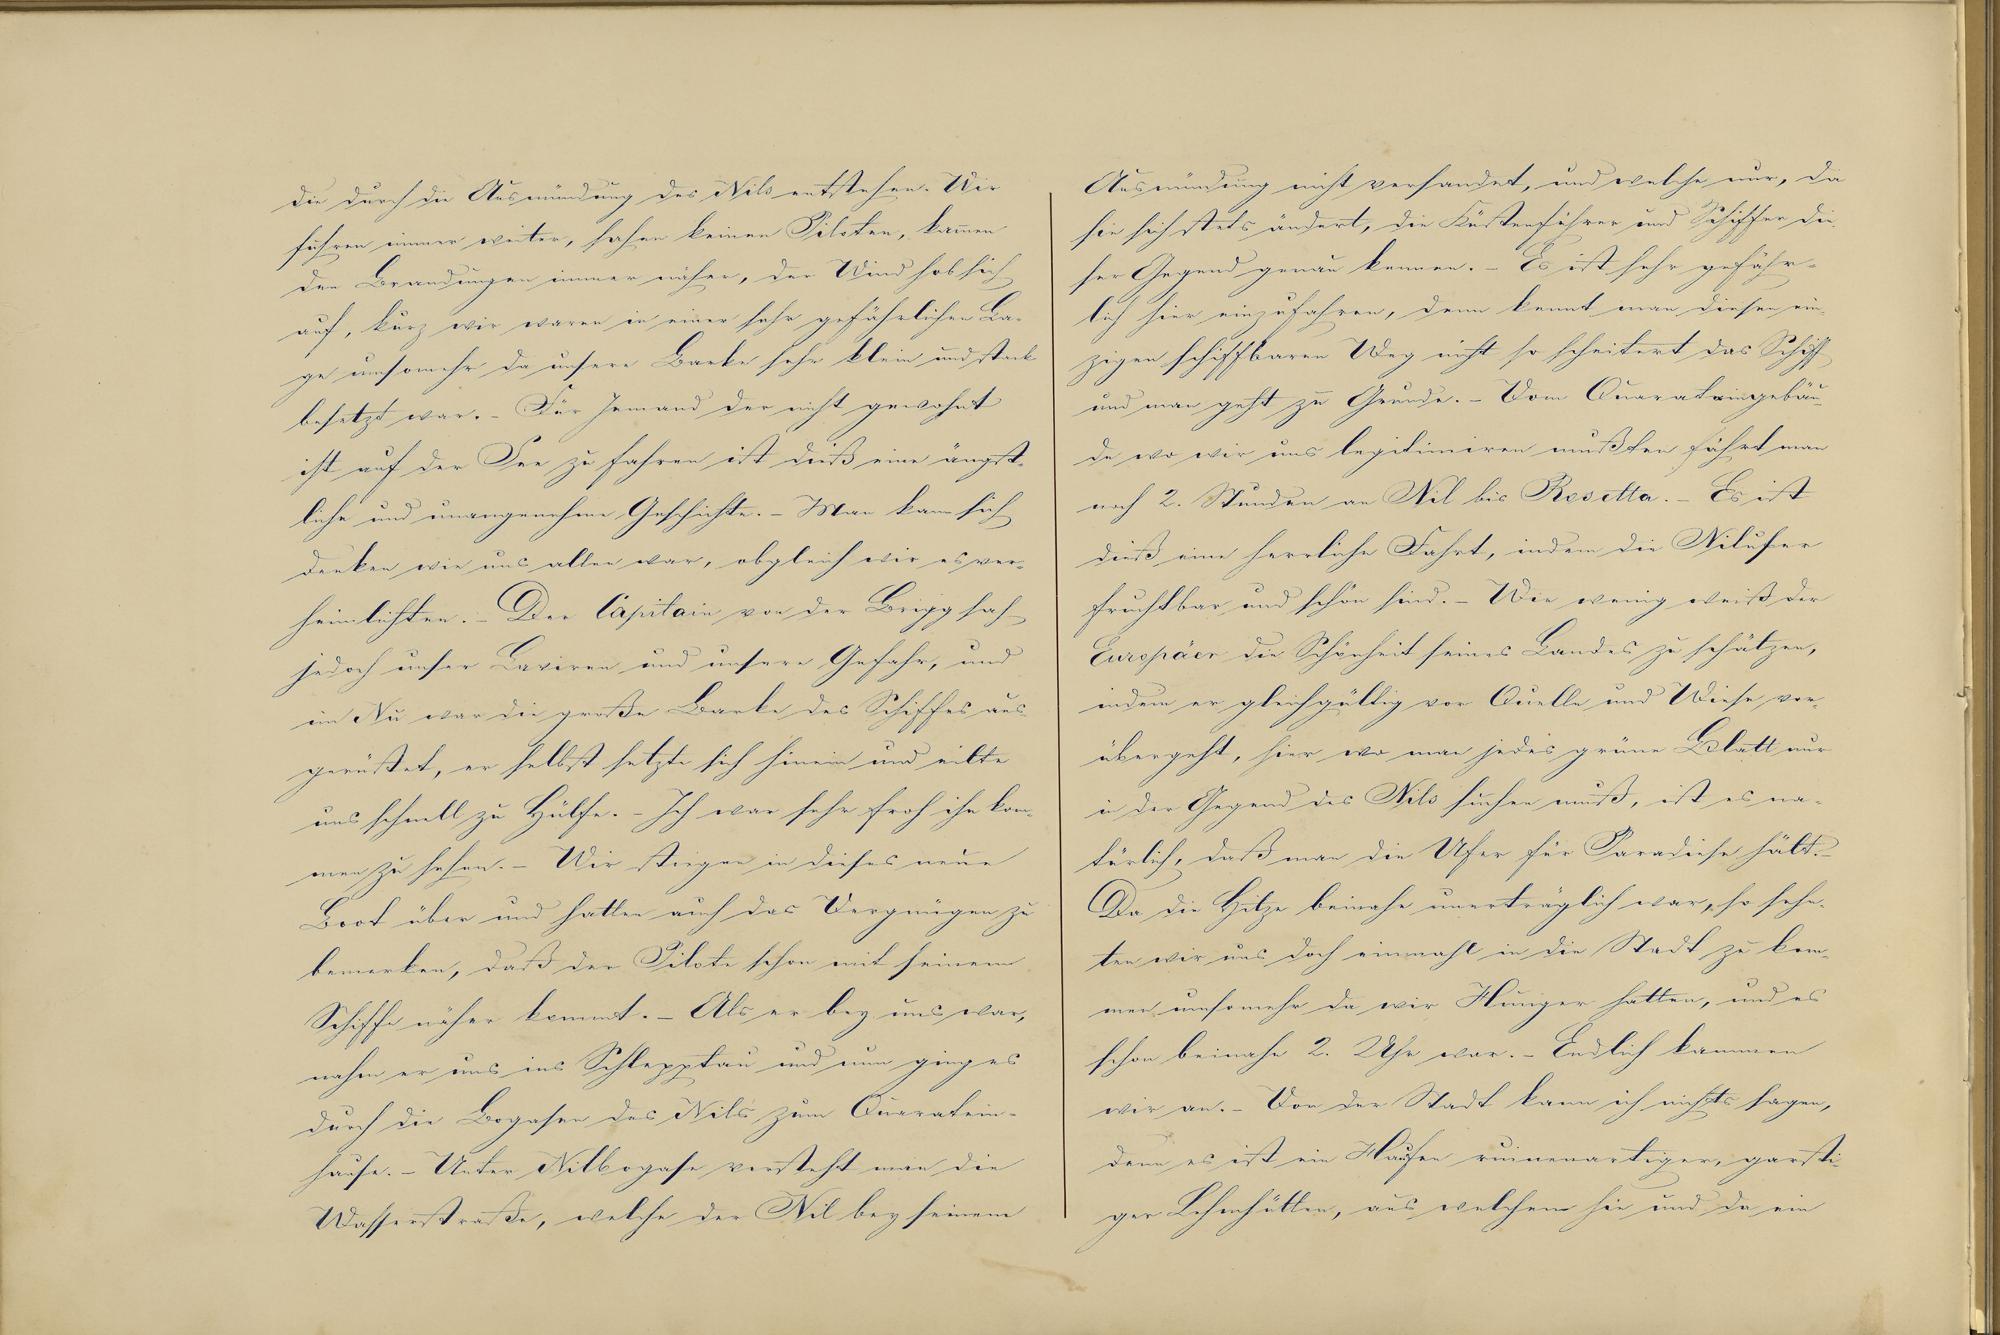 die durch die Ausmündung des Nils entstehen. Wir
fuhren immer weiter, sahen keinen Piloten, kam̅en
den Brandungen immer näher, der Wind hob sich
auf, kurz wir waren in einer sehr gefährlichen La-
ge umsomehr da unsere Barke sehr klein und stark
besetzt war. – Für Jemand der nicht gewohnt
ist auf der See zu fahren ist dieß eine ängst-
liche und unangenehme Geschichte. – Man kann sich
denken wie uns allen war, obgleich wir es ver-
heimlichten. – Der Capitain von der Brigg sah
jedoch unser Laviren und unsere Gefahr, und
im Nu war die große Barke des Schiffes aus-
gerüstet, er selbst setzte sich hinein und eilte
uns schnell zu Hülfe. – Ich war sehr froh ihn kom-
men zu sehen. – Wir stiegen in dieses neue
Boot über und hatten auch das Vergnügen zu
bemerken, daß der Pilote schon mit seinem
Schiffe näher kommt. – Als er bey uns war,
nahm er uns ins Schlepptau und nun ging es
durch die Bogasen des Nils zum Quaratein-
hause. – Unter Nilbogase versteht man die
Wasserstraße, welche der Nil bey seinem
Ausmündung nicht versandet, und welche nur, da
sie sich stets ändert, die Küstenführer und Schiffer die-
ser Gegend genau kennen. – Es ist sehr gefähr-
lich hier einzufahren, denn kennt man diesen ein-
zigen schiffbaren Weg nicht so scheitert das Schiff
und man geht zu Grunde. – Vom Quarateingebäu-
de wo wir uns legitimiren mußten fährt man
noch 2. Stunden am Nil bis Rosetta. – Es ist
dieß eine herrliche Fahrt, indem die Nilufer
fruchtbar und schön sind. – Wie wenig weiß der
Europäer die Schönheit seines Landes zu schätzen,
indem er gleichgültig vor Quelle und Wiese vor-
übergeht, hier wo man jedes grüne Blatt nur
in der Gegend des Nils suchen muß, ist es na-
türlich, daß man die Ufer für Paradiese hält. –
Da die Hitze beinahe unerträglich war, so sehn-
ten wir uns doch einmahl in die Stadt zu kom-
men umsomehr da wir Hunger hatten, und es
schon beinahe 2. Uhr war. – Endlich kammen
wir an. – Von der Stadt kann ich nichts sagen,
denn es ist ein Haufen ruinenartiger, garsti-
ger Lehmhütten, aus welchem hie und da ein